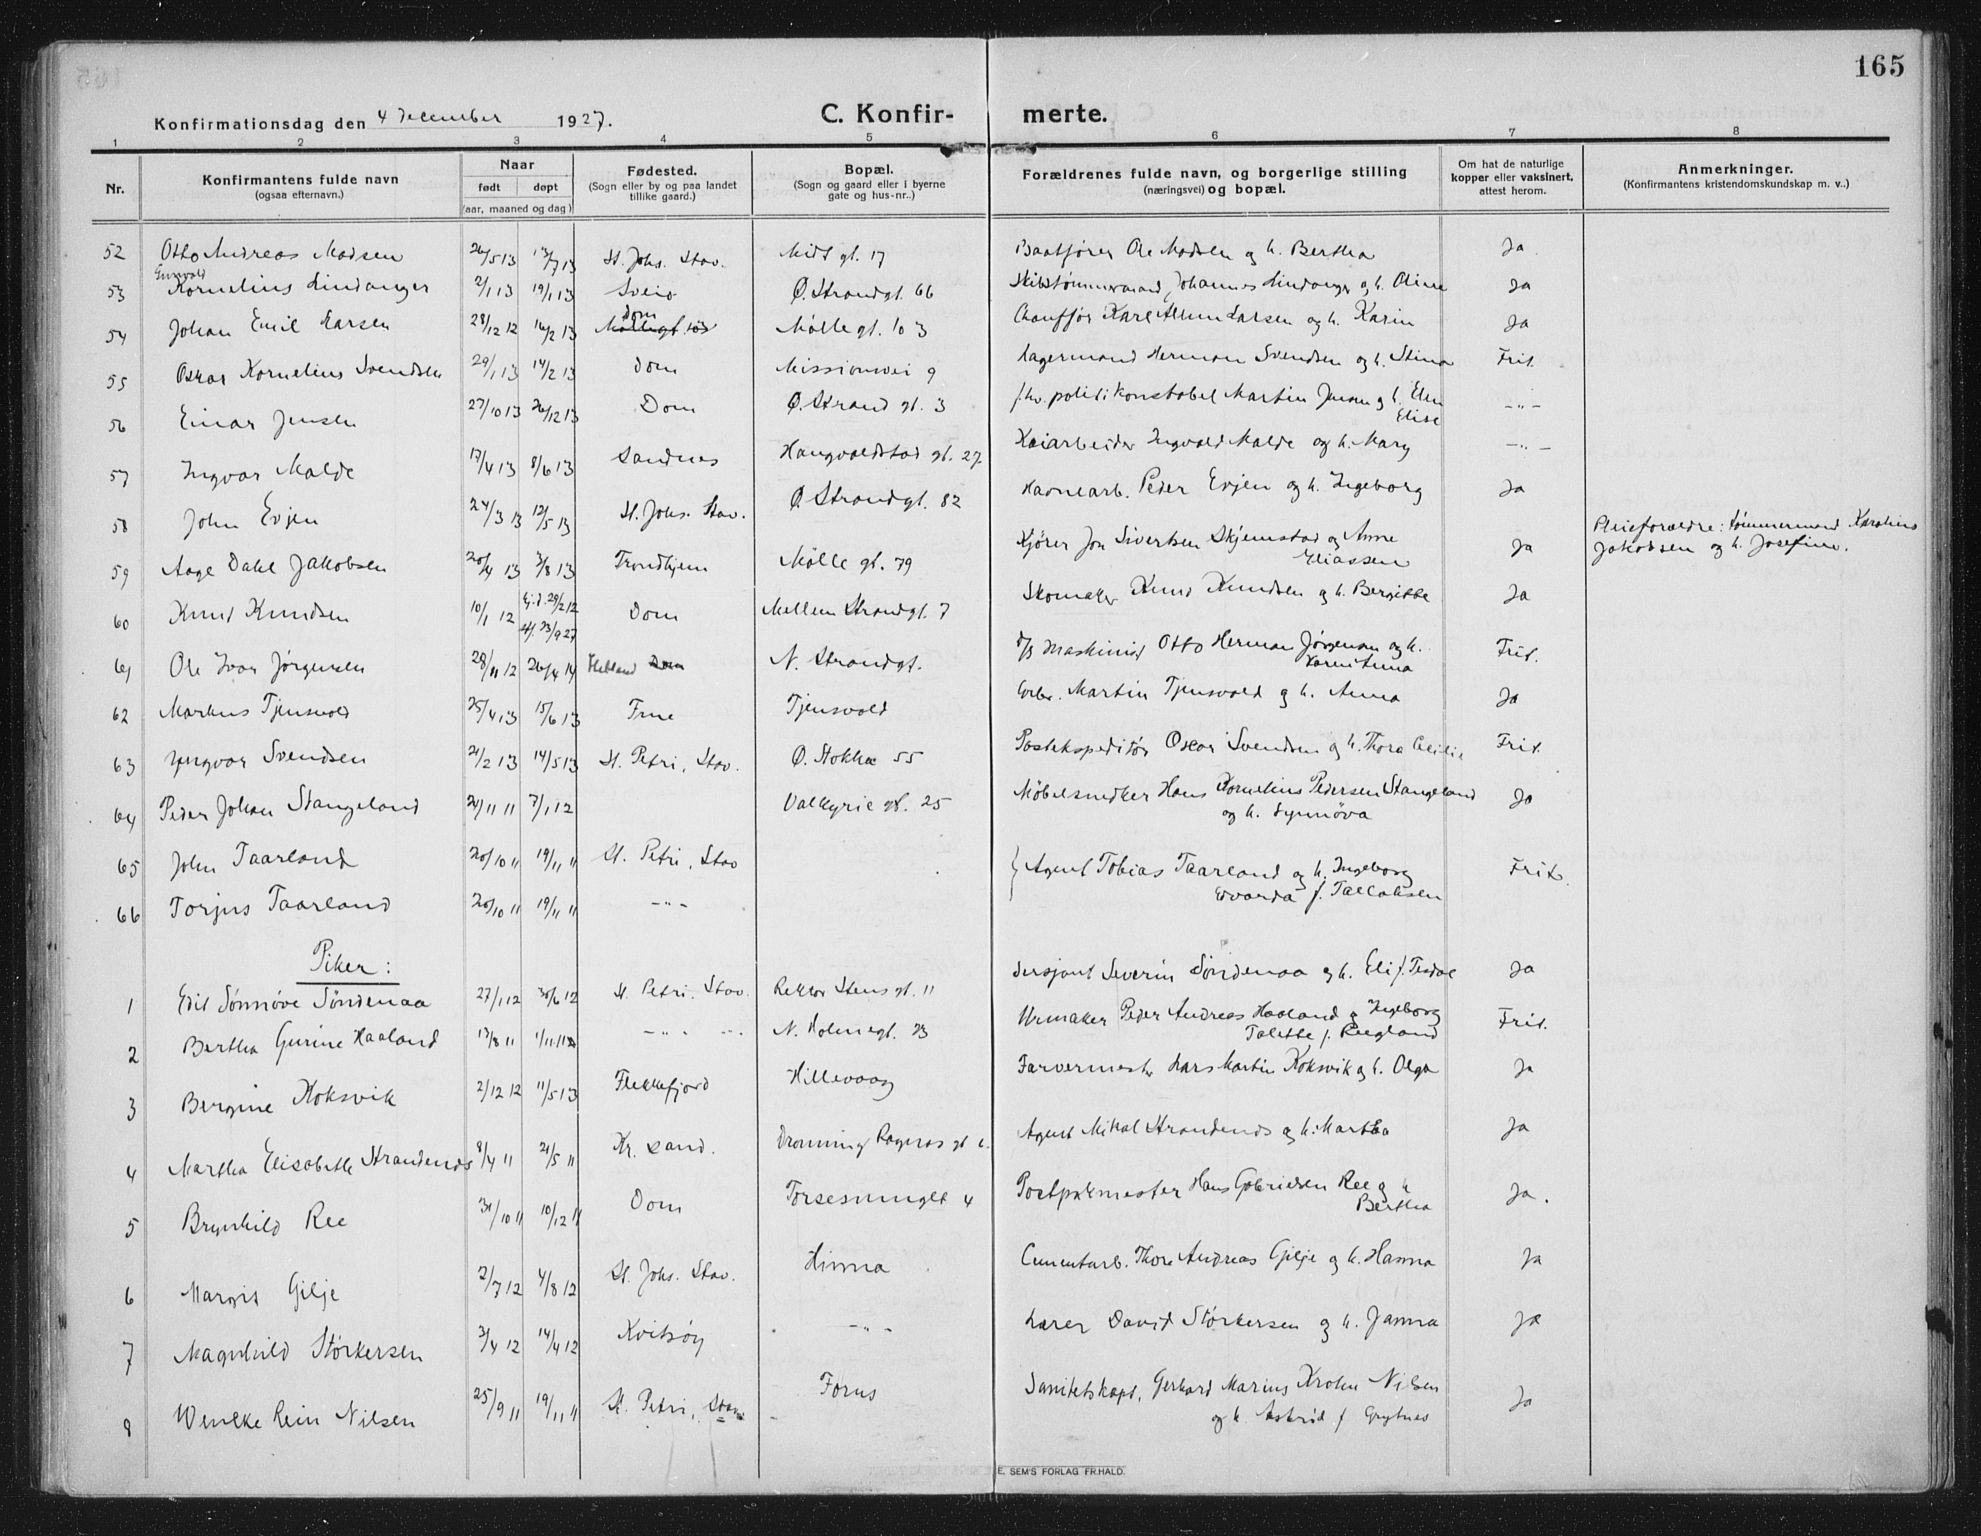 165
Konfirmationsdag den 4 December 1927.
C. Konfirmerte.
1 2 3 4 5 6 7 8
Nr.
Konfirmantens fulde navn
(ogsaa efternavn.)
Naar
født døpt
(aar, maaned og dag)
Fødested.
(Sogn eller by og paa landet
tillike gaard.)
Bopæl.
(Sogn og gaard eller i byerne
gate og hus-nr..)
Forældrenes fulde navn, og borgerlige stilling
(næringsvei) og bopæl.
Om hat de naturlige
kopper eller vaksinert,
attest herom.
Anmerkninger.
(Konfirmantens kristendomskundskap m. v..)
52 Otto Andreas Madsen 26/5 13 13/7 13 St. Johs. Stav. Midt gt. 17 Baatfører Ole Madsen og h. Bertha Ja
53 Gunvald Kornelius Lindanger 2/1 13 19/1 13 Sveio Ø. Strandgt. 66 Skibstømmermand Johannes Lindanger og h. Oline Ja
54 Johan Emil Larsen 28/12 12 16/2 13 Dom Møllegt. 103 Mølle gt. 103 Chauffør Karl Larsen og h. Karin Ja
55 Oskar Kornelius Svendsen 29/1 13 14/2 13 Dom Missionsvei 9 Lagermand Herman Svendsen og h. Stina Frit.
56 Einar Jensen 27/10 13 26/12 13 Dom Ø. Strand gt. 3 fhv. politikonstabel Martin Jensen og h. Elen
Elise -"-
57 Ingvar Malde 17/4 13 8/6 13 Sandnes Haugvaldstad gt. 27 Kaiarbeider Ingvald Malde og h. Mary -"-
58 John Evjen 24/3 13 12/5 13 St. Johs. Stav. Ø. Strandgt. 82 Havnearb. Peder Evjen og h. Ingeborg Ja
59 Aage Dahl Jakobsen 20/4 13 3/8 13 Trondhjem Mølle gt. 79 Kjører Jon Sivertsen Skjemstad og Anne
Eliassen Ja Pleieforældre: tømmermand Karolius
Jakobsen og h. Josefine.
60 Knut Knudsen 10/1 12 Hj.d. 29/2 12
st. 23/9 27 Dom Mellem Strandgt. 7 Skomaker Knud Knudsen og h. Bergitte Ja
61 Ole Ivar Jørgensen 28/11 12 26/4 14 Hetland Dom N. Strandgt. d/s maskinist Otto Herman Jørgensen og h.
Karen Anna Frit.
62 Markus Tjensvold 25/4 13 15/6 13 Frue Tjensvold Arb. Martin Tjensvold og h. Anna Ja
63 Yngvar Svendsen 21/2 13 14/5 13 St. Petri, Stav. Ø. Stokka 55 Postekspeditør Oscar Svendsen og h. Thora Cecilie Frit.
64 Peder Johan Stangeland 24/11 11 7/1 12 Valkyrie gt. 25 Møbelsnedker Hans Kornelius Pedersen Stangeland
og h. Synnøva Ja
65 John Taarland 20/10 11 19/11 11 St. Petri, Stav } Agent Tobias Taarland og h. Ingeborg
Edvarda f. Tallaksen Frit.
66 Torjus Taarland 20/10 11 19/11 11 -"-
Piker:
1 Edit Sønnøve Söndenaa 27/1 12 30/6 12 St. Petri. Stav. Rektor Stens gt. 11 Sersjant Severin Söndenaa og h. Eli f. Tesdal Ja
2 Bertha Gurine Haaland 13/8 11 1/11 11 -"- -"- N. Holmegt. 23 Urmaker Peder Andreas Haaland og Ingeborg
Talette f. Reegland Frit.
3 Bergine Koksvik 2/12 12 11/5 13 Flekkefjord Hillevaag Farvermester Lars Martin Koksvik og h. Olga Ja
4 Martha Elisabeth Strandenæs 8/4 11 21/5 11 Kr. sand. Dronning Ragnas gt 6. Agent Mikal Strandenæs og h. Martha Ja
5 Brynhild Ree 31/10 11 10/12 11 Dom Torsesmuglet 4 Postpakmester Hans Gabrielsen Ree og h
Bertha Ja.
6 Margit Gilje 2/7 12 4/8 12 St. Johs. Stav. Hinna Cementarb. Thore Andreas Gilje og h. Hanna Ja
7 Magnhild Størkersen 3/4 12 14/4 12 Kvitsøy -"- Lærer David Størkersen og h. Janna Ja
8 Wenkke Rein Nilsen 25/9 11 19/11 11 St. Petri, Stav. Forus Sanitetskapt. Gerhard Marius Krohn Nilsen
og h. Astrid f. Grytnes Ja
E. SEM'S FORLAG FR.HALD.